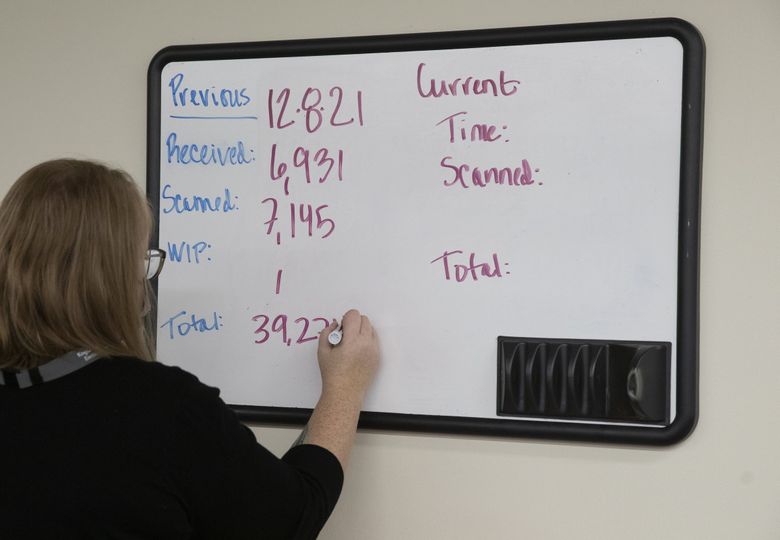 Previous 12.8.21
Received: 6,931
Scanned: 7,145
WIP: 1
Total: 39,22
Current
Time:
Scanned:
Total: